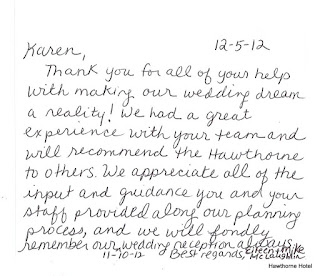 12-5-12
Karen,
Thank you for all of your help
with making our wedding dream
a reality! We had a great
experience with your team and
will recommend the Hawthorne
to others. We appreciate all of the
input and guidance you and your
staff provided along our planning
process, and we will fondly
remember our wedding reception always.
11-10-12 Best regards, Eileen & Mike
McLaughlin
Hawthorne Hotel